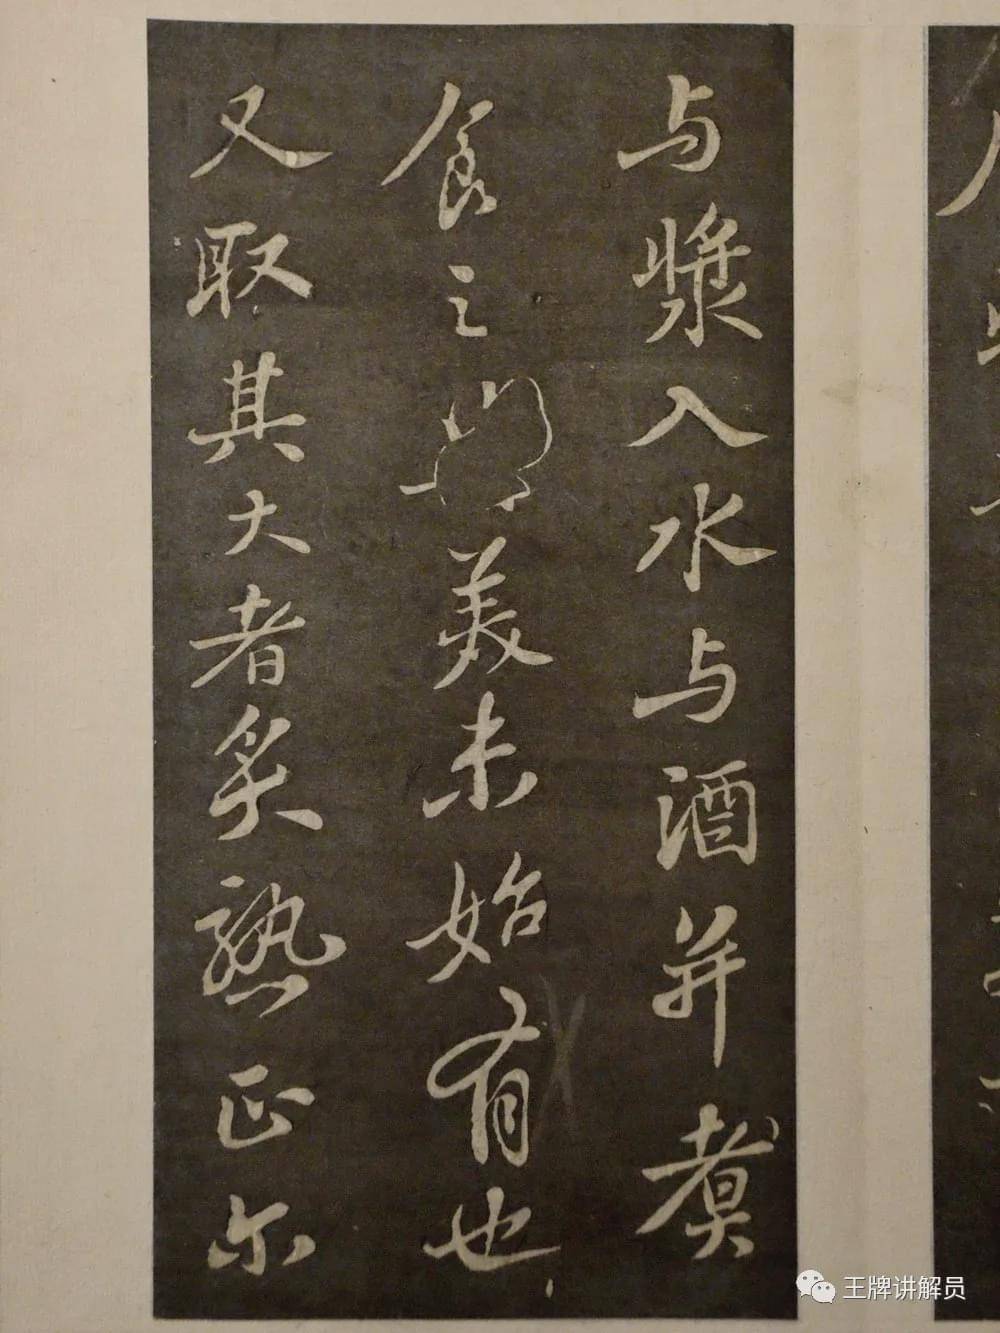 与漿入水与酒并煑
食之甚美未始有也
又取其大者炙熟正尓
王牌讲解员